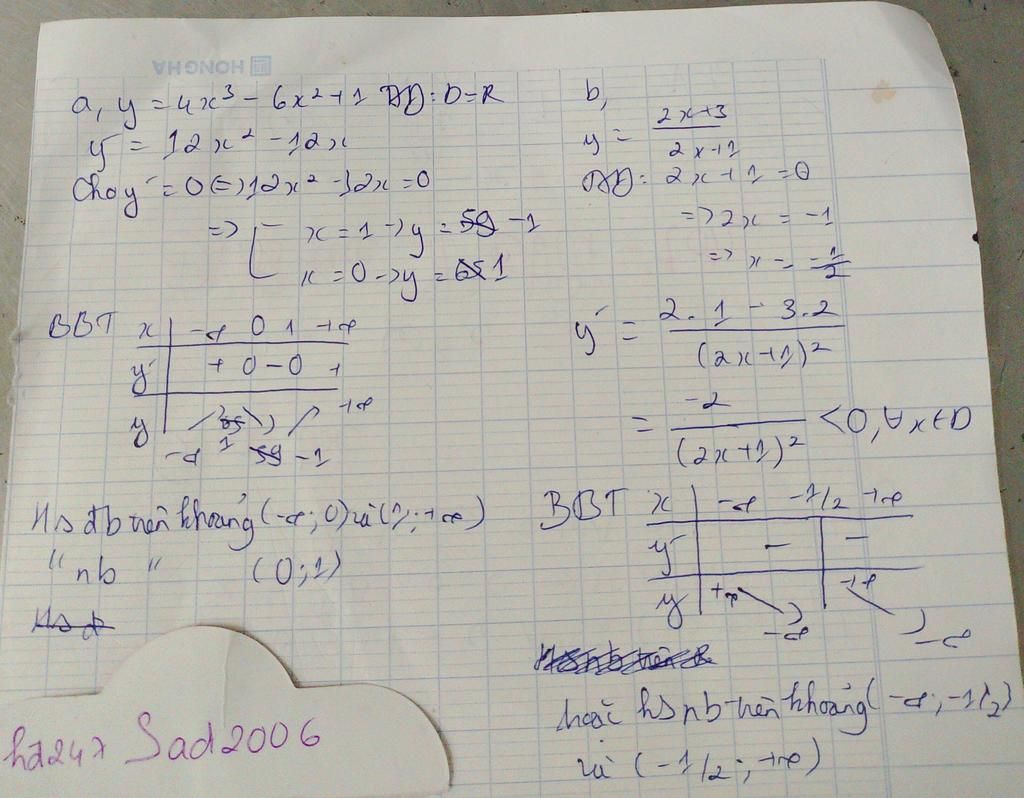 HONG HA
a, y = 4x³ - 6x² + 1 TXĐ: D = R
y' = 12x² - 12x
Cho y' = 0 (=) 12x² - 12x = 0
=> [ x = 1 -> y = -1
x = 0 -> y = 1
BBT x | -∞ 0 1 +∞
y' | + 0 - 0 +
y | +∞
-∞ 1 -1
Hs đb trên khoảng (-∞; 0) và (1; +∞)
" nb " (0; 1)
Hs đ
hd247 Sad2006
b,
y = (2x+3)/(2x+1)
TXĐ: 2x + 1 = 0
=> 2x = -1
=> x = -1/2
y' = (2.1 - 3.2)/(2x+1)²
= -2/(2x+1)² < 0, ∀x ∈ D
BBT x | -∞ -1/2 +∞
y' | - | -
y | +∞ | +∞
-∞ | -∞
hoặc hs nb trên khoảng (-∞; -1/2)
và (-1/2; +∞)